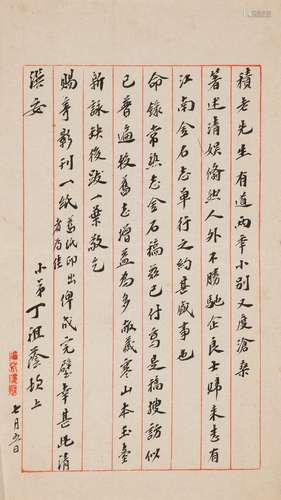 積老先生有道兩年小別又度滄桑
著述清娛翛然人外不勝馳企良士歸來悉有
江南金石志單行之約甚盛事也
命錄常熟志金石稿茲已付寫是稿搜訪似
已普遍較舊志增益為多敝藏寒山本玉臺
新詠缺後跋一葉敬乞
賜予影刊一紙舊紙印出者為佳俾成完璧幸甚此請
撰安
小弟丁祖蔭頓上
七月五日